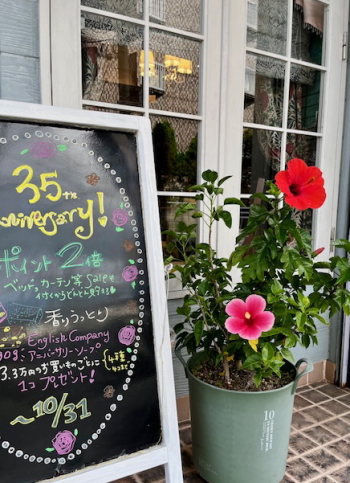 35th
Anniversary!
ポイント2倍
ベッド、カーテン等 Sale
香りうっとり
English Company
アニバーサリーソープ
3.3万のお買いものごとに
1コ プゼント!
~10/31
10